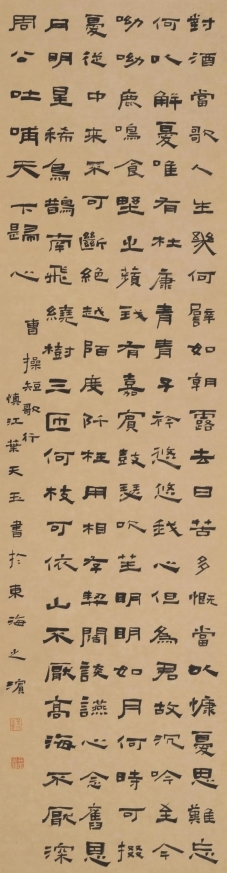 對酒當歌人生幾何譬如朝露去日苦多慨當以慷憂思難忘
何以解憂唯有杜康青青子衿悠悠我心但為君故沉吟至今
呦呦鹿鳴食野之蘋我有嘉賓鼓瑟吹笙明明如月何時可掇
憂從中來不可斷絕越陌度阡枉用相存契闊談讌心念舊恩
月明星稀烏鵲南飛繞樹三匝何枝可依山不厭高海不厭深
周公吐哺天下歸心
曹操短歌行
慎江葉天玉書於東海之濱